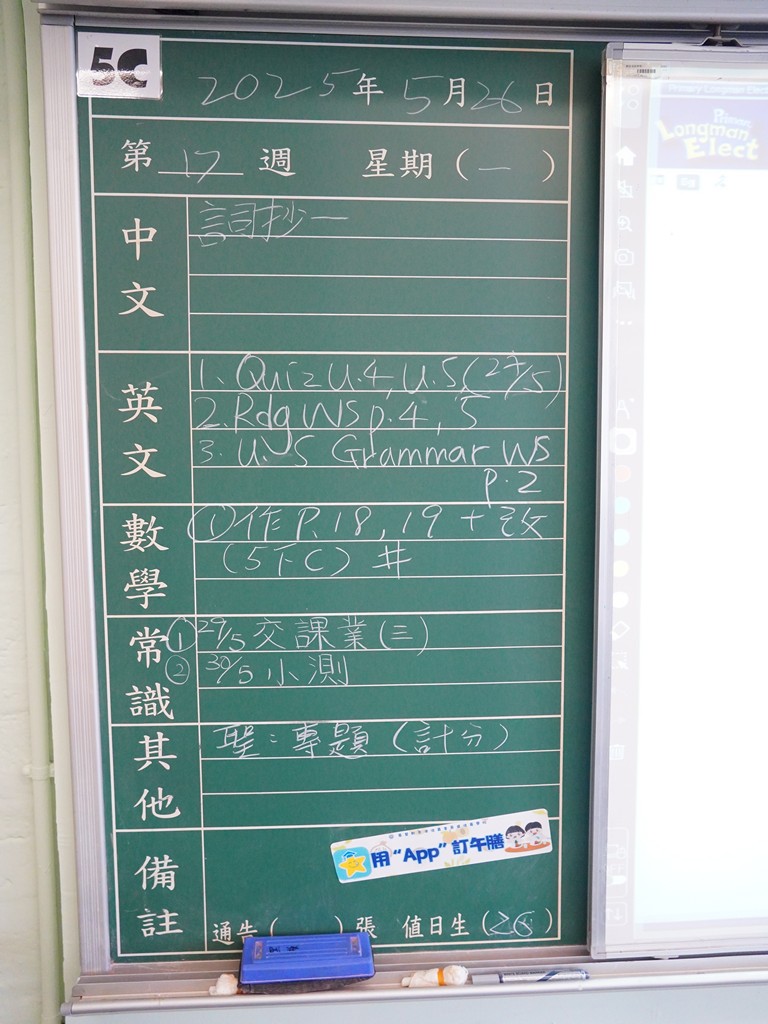 5C
2025年5月26日
第 17 週 星期(一)
中文
詞抄一
英文
1. Quiz U.4, U.5 (27/5)
2. Rdg WS p.4, 5
3. U.5 Grammar WS
p.2
數學
① 作 P.18, 19 + 改
(5下C) #
常識
① 29/5 交課業(三)
② 30/5 小測
其他
聖:專題(計分)
備註
用“App”訂午膳
通告( )張 值日生( )
Primary Longman Elect
Primary
Longman
Elect